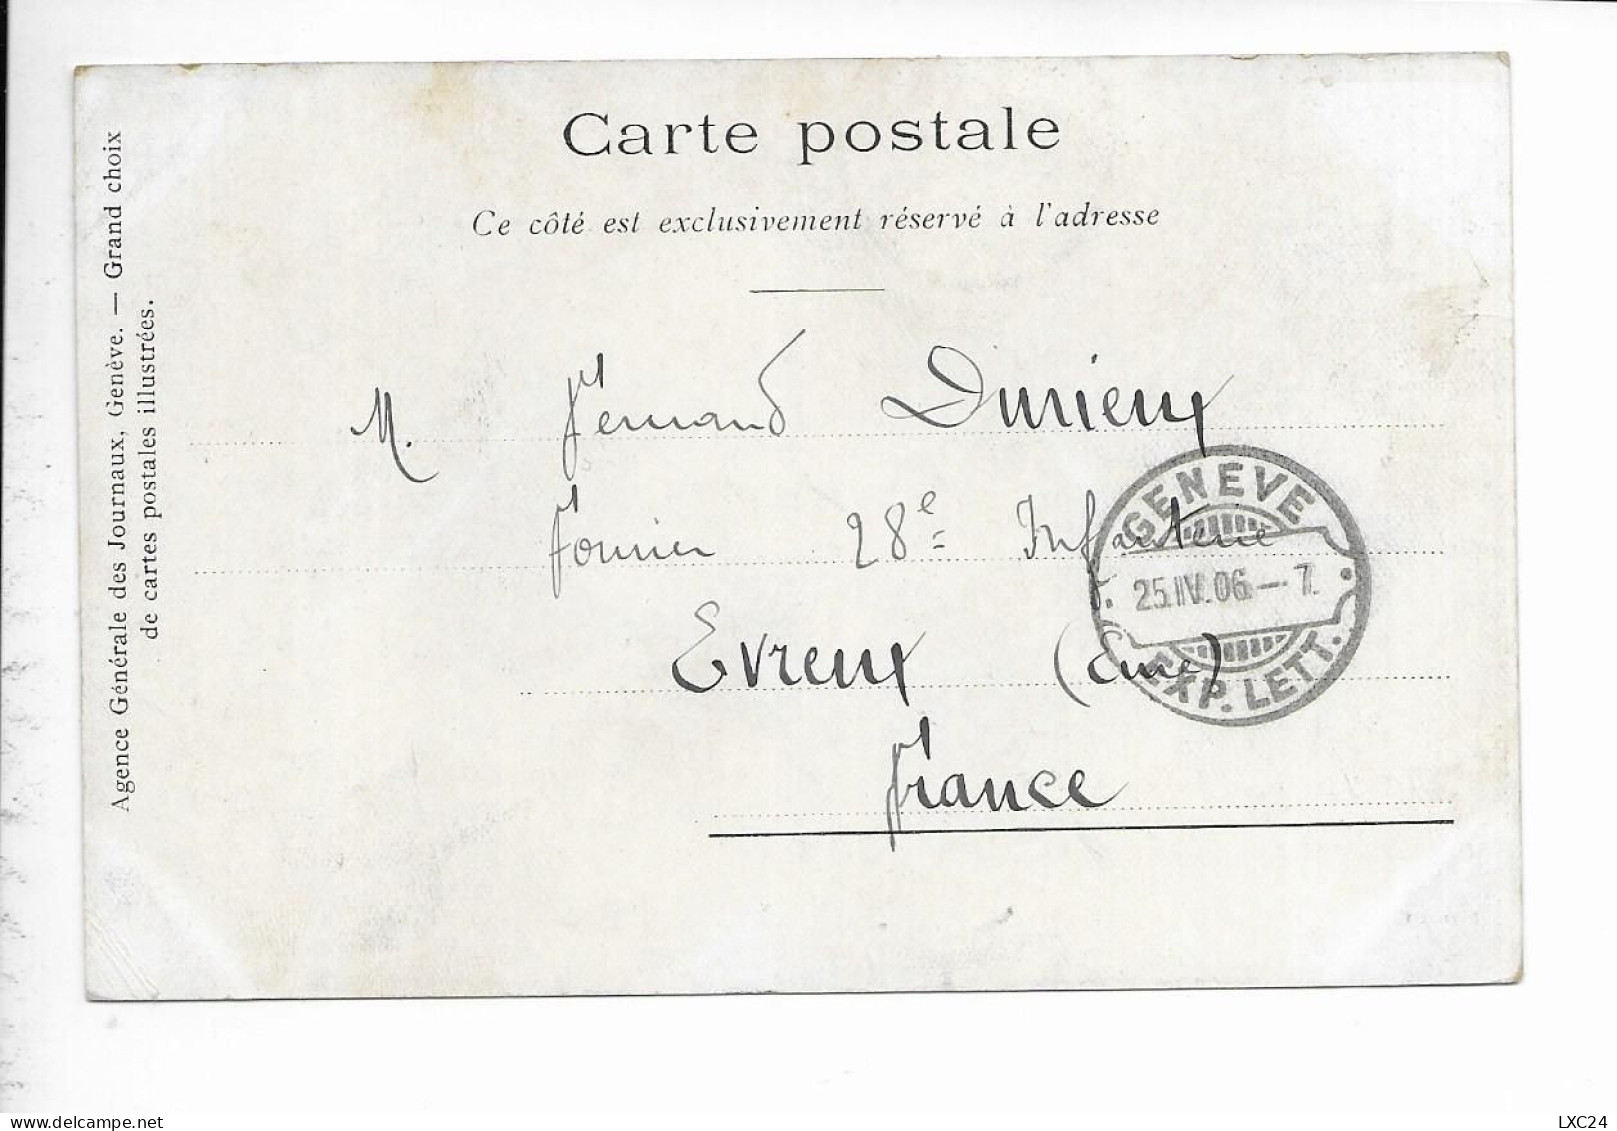 Carte postale
Ce côté est exclusivement réservé à l'adresse
Agence Générale des Journaux, Genève. — Grand choix
de cartes postales illustrées.
M. Fernand Durieux
Fourrier 28e Infanterie
Evreux (Eure)
France
GENEVE
25.IV.06.—7.
EXP. LETT.
www.delcampe.net
LXC24